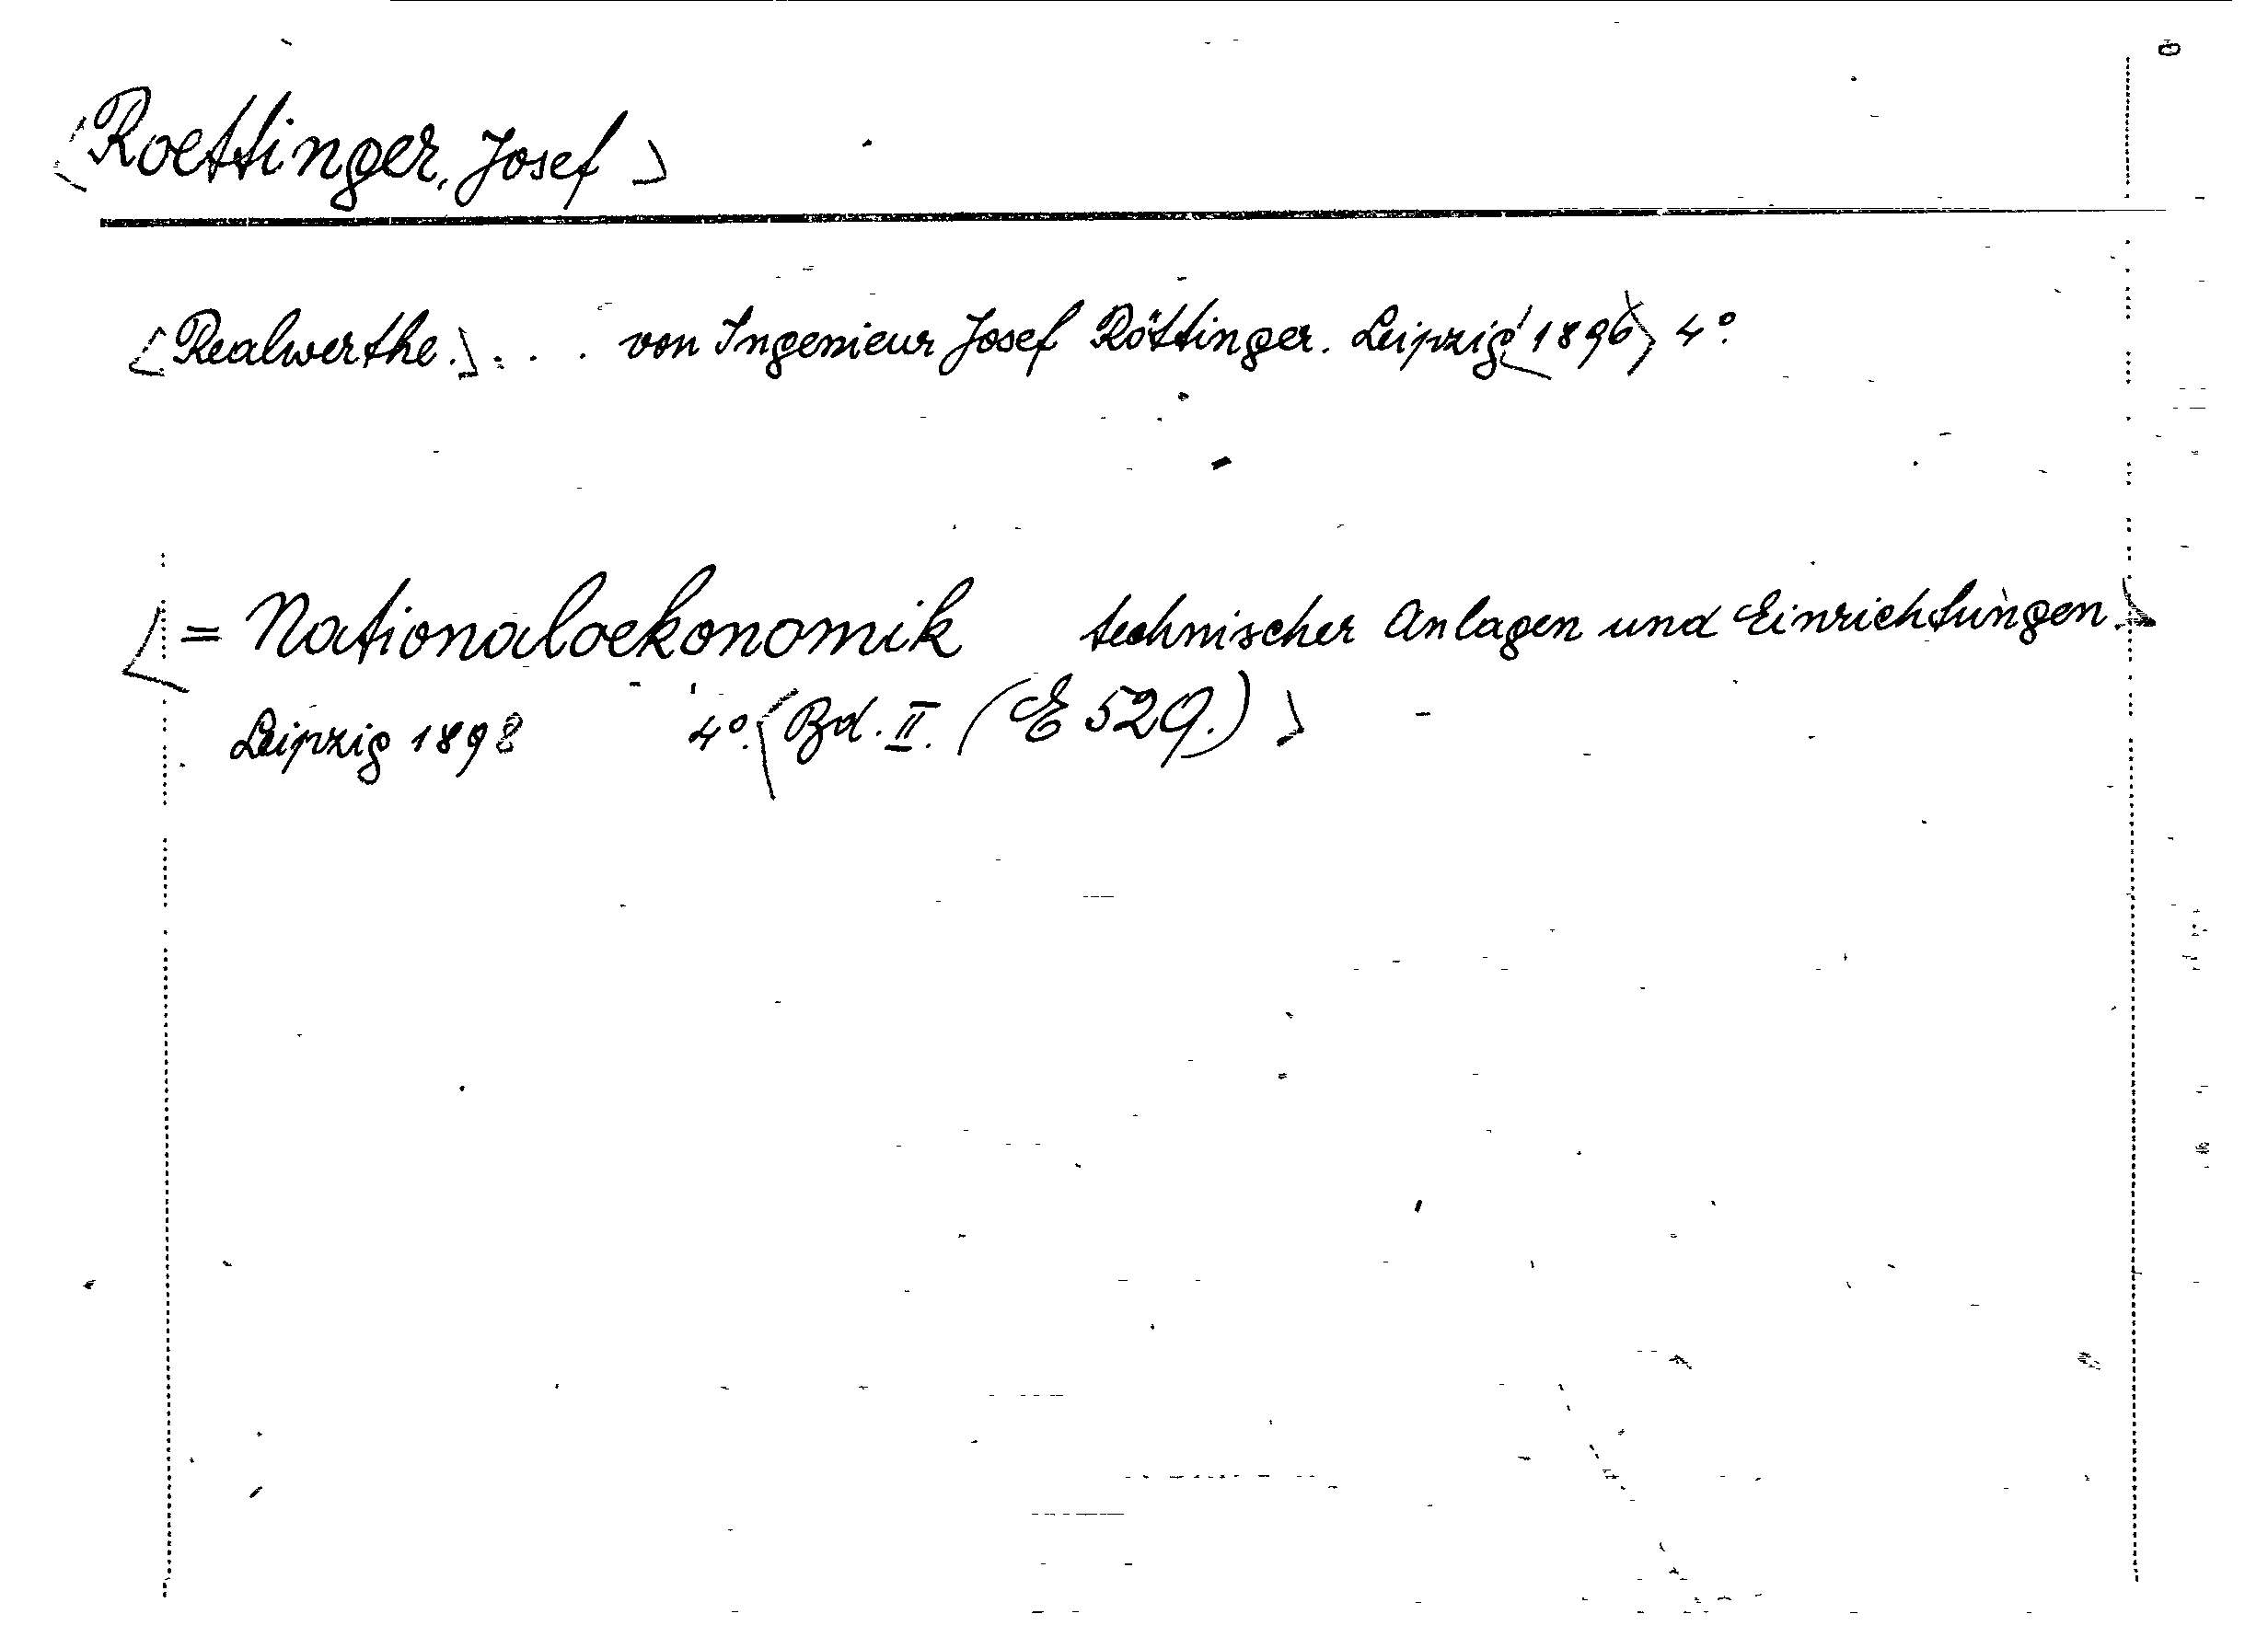 <Roettinger, Josef>
<Realwerthe.> . . . von Ingenieur Josef Röttinger. Leipzig <1896> 4°.
<= Nationaloekonomik technischer Anlagen und Einrichtungen.>
Leipzig 1898 4°. <Bd. II. (E 529.)>